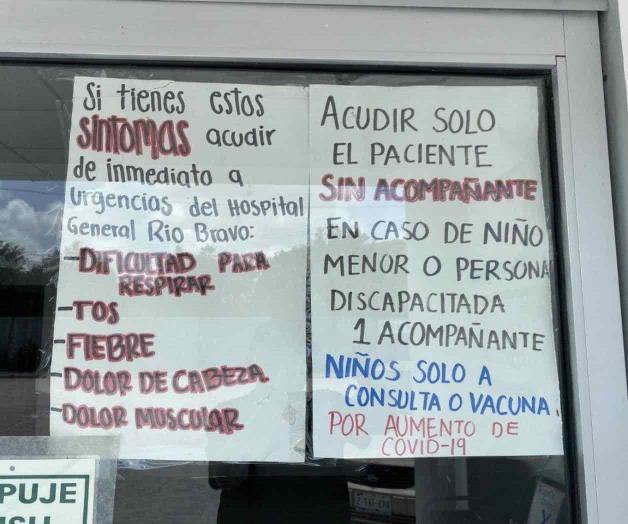 Si tienes estos
SINTOMAS acudir
de inmediato a
urgencias del Hospital
General Rio Bravo:
-DIFICULTAD PARA
RESPIRAR
-TOS
-FIEBRE
-DOLOR DE CABEZA.
-DOLOR MUSCULAR
ACUDIR SOLO
EL PACIENTE
SIN ACOMPAÑANTE
EN CASO DE NIÑO
MENOR O PERSONA
DISCAPACITADA
1 ACOMPAÑANTE
NIÑOS SOLO A
CONSULTA O VACUNA.
POR AUMENTO DE
COVID-19
PUJE